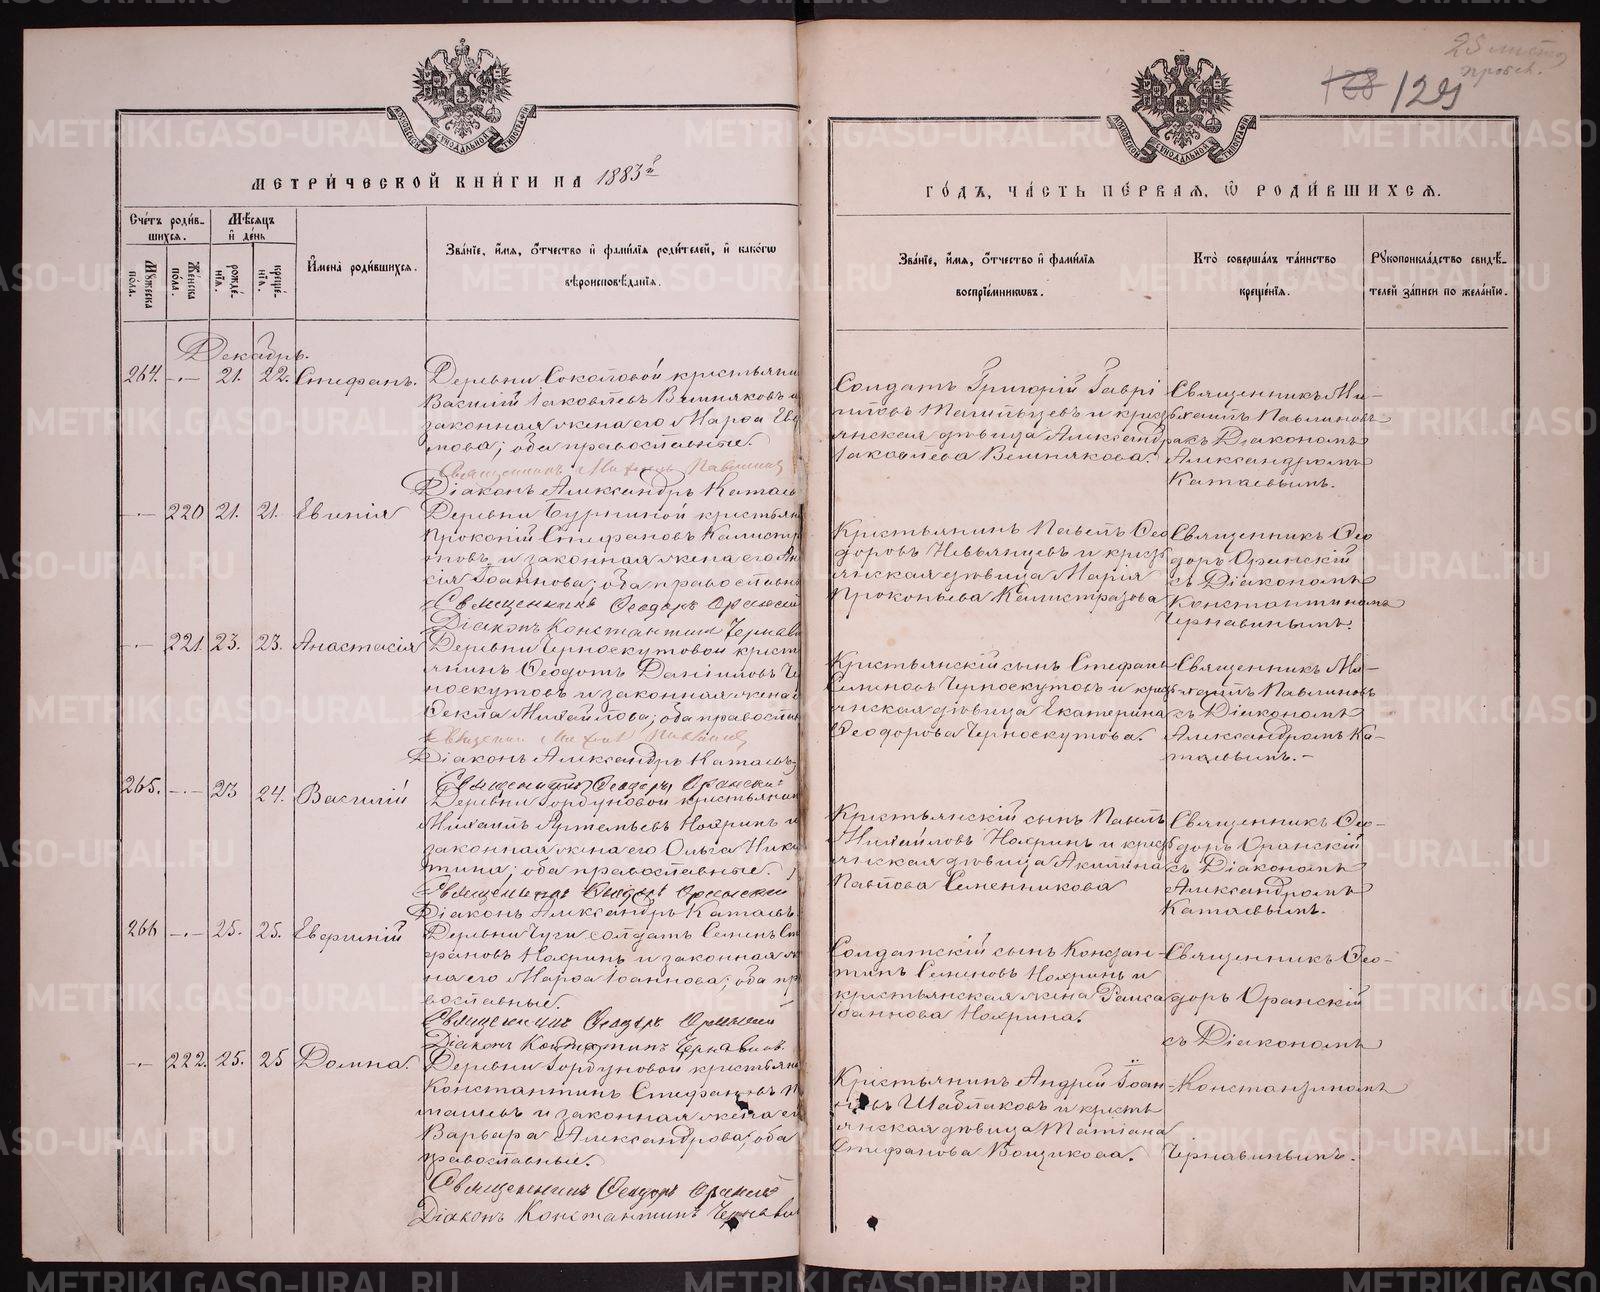 25 листо
пробѣл.
128 129
МОСКОВСКОЙ СѴНОДАЛЬНОЙ ТИПОГРАФІИ
МОСКОВСКОЙ СѴНОДАЛЬНОЙ ТИПОГРАФІИ
МЕТРИ́ЧЕСКОЙ КНИ́ГИ НА 1883й
ГО́ДЪ, ЧА́СТЬ ПЕ́РВАЯ, Ѡ РОДИ́ВШИХСЯ.
Сче́тъ роди́в-
шихся.
Мꙋжеска по́ла.
Же́нска по́ла.
Мѣ́сяцъ
и҆ де́нь
рожде́-
нїѧ.
креще́-
нїѧ.
И҆мена̀ роди́вшихся.
Зва́нїе, и҆́мя, ѻ҆́тчество и҆ фами́лїя роди́телей, и҆ како́гѡ
вѣроисповѣ́данїя.
Зва́нїе, и҆́мя, ѻ҆́тчество и҆ фами́лїя
воспрїе́мникѡвъ.
Кто̀ соверша́лъ та́инство
креще́нїя.
Рꙋкоприкла́дство свидѣ́-
телей за́писи по жела́нїю.
Декабрь.
264. -.- 21. 22. Стефанъ.
Деревни Соколовой крестьяни
Василій Іаковлевъ Вешняковъ и
законная жена его Марѳа Ев
мова; оба православные.
Священникъ Михаилъ Павлинов
Діаконъ Александръ Катаевъ
Солдатъ Григорій Гаврі
иловъ Талипыцевъ и крест
янская дѣвица Александра
Іаковлева Вешнякова.
Священникъ Ми-
хаилъ Павлиновъ
съ Діакономъ
Александромъ
Катаевымъ.
-.- 220 21. 21. Евгенія
Деревни Бурниной крестьян
Прокопій Стефановъ Калистр
товъ и законная жена его Ан
сія Іоаннова; оба православн
Священникъ Ѳеодоръ Оранскій
Діаконъ Константинъ Чернави
Крестьянинъ Павелъ Ѳео
доровъ Невьянцевъ и крест
янская дѣвица Марія
Прокопьева Калистратова
Священникъ Ѳео
доръ Оранскій
съ Діакономъ
Константиномъ
Чернавинымъ.
-.- 221. 23. 23. Анастасія
Деревни Черноскутовой крест
янинъ Ѳеодотъ Даніиловъ Че
носкутовъ и законная жена
Ѳекла Михайлова; оба православ
Священникъ Михаилъ Павлиновъ
Діаконъ Александръ Катаевъ
Крестьянскій сынъ Стефанъ
Семеновъ Черноскутовъ и крест
янская дѣвица Екатерина
Ѳеодорова Черноскутова.
Священникъ Ми-
хаилъ Павлиновъ
съ Діакономъ
Александромъ Ка-
таевымъ.-
265. -.- 23 24. Василій
Священникъ Ѳеодоръ Оранскій
Деревни Горбуновой крестьянин
Михаилъ Артемьевъ Нохринъ и
законная жена его Ольга Ники
тина; оба православные.
Священникъ Ѳеодоръ Оранскій
Діаконъ Александръ Катаевъ.
Крестьянскій сынъ Павелъ
Михайловъ Нохринъ и крест
янская дѣвица Акилина
Павлова Семенникова
Священникъ Ѳео-
доръ Оранскій
съ Діакономъ
Александромъ
Катаевымъ.
266 -.- 25. 25. Евфимій
Деревни Чуги солдатъ Семенъ Ст
фановъ Нохринъ и законная же
на его Марѳа Іоаннова; оба пр
вославные.
Священникъ Ѳеодоръ Оранскій
Діаконъ Константинъ Чернавинъ.
Солдатскій сынъ Констан-
тинъ Семеновъ Нохринъ и
крестьянская жена Раиса
Іоаннова Нохрина.
Священникъ Ѳео-
доръ Оранскій
съ Діакономъ
Константиномъ
Чернавинымъ.
-.- 222. 25. 25 Домна.
Деревни Горбуновой крестьяни
Константинъ Стефановъ
ташевъ и законная жена ег
Варвара Александрова; оба
православные.
Священникъ Ѳеодоръ Оранскій
Діаконъ Константинъ Чернави
Крестьянинъ Андрей Іоан
новъ Шаблаковъ и кресть
янская дѣвица Татіана
Стефанова Вощикова.
METRIKI.GASO-URAL.RU